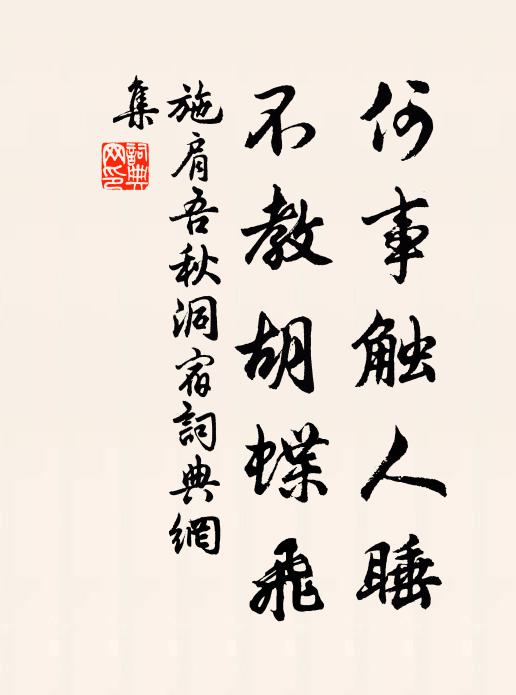 何事触人睡
不教胡蝶飛
施肩吾秋洞宿詞典網
集
詞典
网印